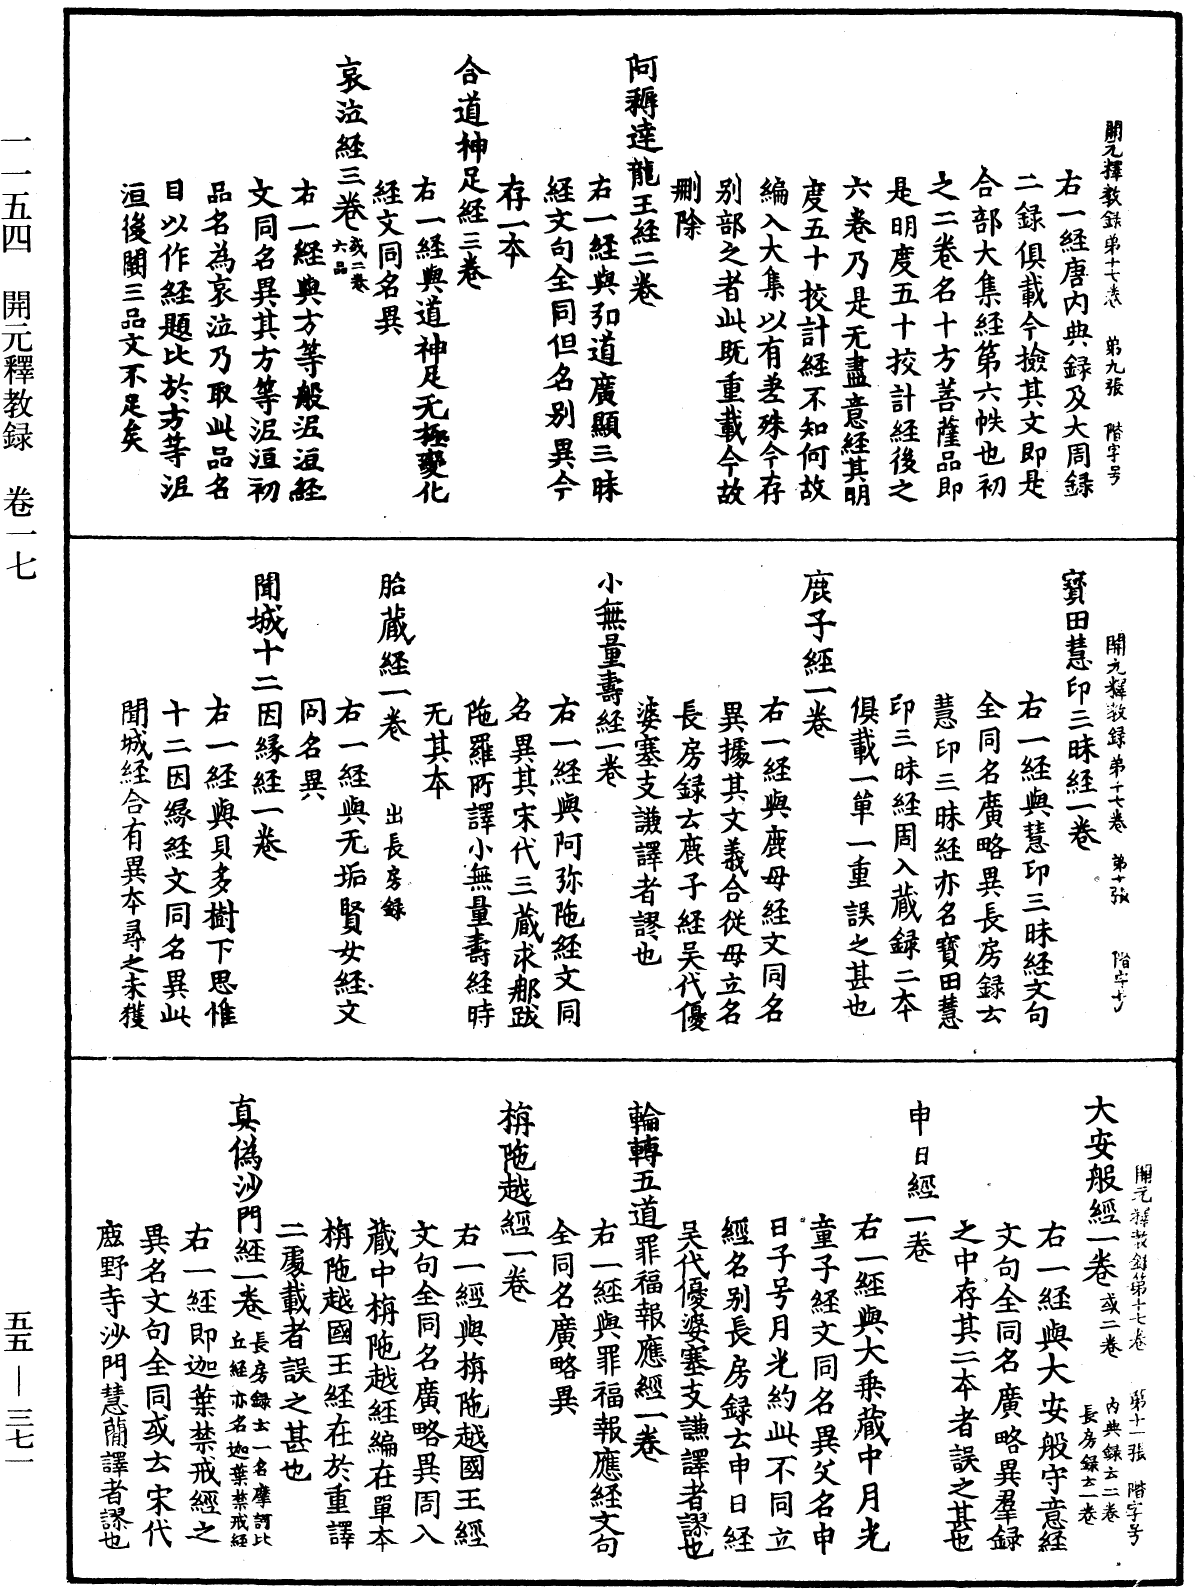 一一五四　開元釋教録　卷一七
五五—三七一
開元釋教録第十七卷　第九張　階字号
右一經唐内典録及大周録
二録俱載今撿其文即是
合部大集經第六帙也初
之二卷名十方菩薩品即
是明度五十挍計經後之
六卷乃是无盡意經其明
度五十挍計経不知何故
編入大集以有差殊今存
别部之者此既重載今故
刪除
阿耨達龍王経二卷
右一經與弘道廣顯三昧
経文句全同但名别異今
存一本
合道神足経三卷
右一經與道神足无極變化
経文同名異
哀泣経三卷或二卷六品
右一經與方等般泥洹経
文同名異其方等泥洹初
品名為哀泣乃取此品名
目以作經題比於方等泥
洹後闕三品文不足矣
開元釋教録第十七卷　第十張　階字号
寶田慧印三昧経一卷
右一經與慧印三昧経文句
全同名廣略異長房録云
慧印三昧経亦名寶田慧
印三昧経周入蔵録二本
俱載一單一重誤之甚也
鹿子經一卷
右一經與鹿母経文同名
異據其文義合從母立名
長房録云鹿子経吴代優
婆塞支謙譯者謬也
小無量壽經一卷
右一經與阿弥陁経文同
名異其宋代三蔵求那跋
陁羅所譯小無量壽経時
无其本
胎蔵経一卷　出長房録
右一經與无垢賢女経文
同名異
聞城十二因縁経一卷
右一經與貝多樹下思惟
十二因縁経文同名異此
聞城経合有異本尋之未獲
開元釋教録第十七卷　第十一張　階字号
大安般經一卷或二卷　内典録云二卷長房録云一卷
右一經與大安般守意経
文句全同名廣略異羣録
之中存其二本者誤之甚也
申日經一卷
右一經與大乗蔵中月光
童子経文同名異父名申
日子号月光約此不同立
經名别長房録云申日経
吴代優婆塞支謙譯者謬也
輪轉五道罪福報應經一卷
右一經與罪福報應経文句
全同名廣略異
栴陁越經一卷
右一經與栴陁越國王經
文句全同名廣略異周入
蔵中栴陁越経編在單本
栴陁越國王経在於重譯
二處載者誤之甚也
真偽沙門経一卷長房録云一名摩訶比丘経亦名迦葉禁戒経
右一経即迦葉禁戒經之
異名文句全同或云宋代
鹿野寺沙門慧蕳譯者謬也